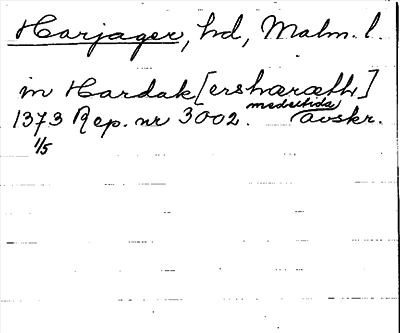 Harjager, hd, Malm. l.
in Hardak [ershæræth]
1373 Rep. nr 3002. medeltida avskr.
1/5